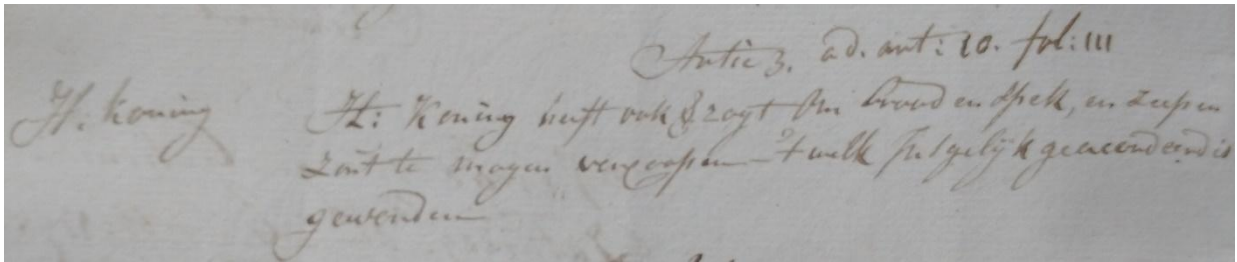 Artic 3. ad. art: 10. fol: 111
H: Koning
H: Koning heeft ook gezogt om brood en spek, en zeep en
zout te mogen verkoopen 't welk Insgelijk geaccordeerd is
geworden